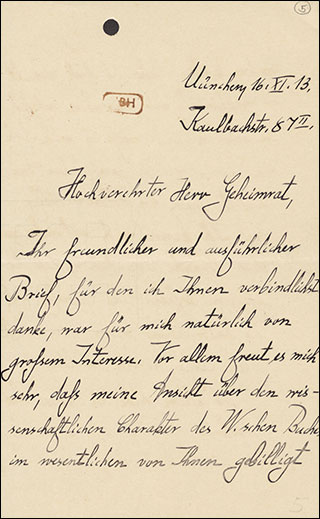 5
München, 16. XI. 13.
Kaulbachstr. 87 II.
Hochverehrter Herr Geheimrat,
Ihr freundlicher und ausführlicher
Brief, für den ich Ihnen verbindlichst
danke, war für mich natürlich von
grossem Interesse. Vor allem freut es mich
sehr, dass meine Ansicht über den wis-
senschaftlichen Charakter des W.schen Buches
im wesentlichen von Ihnen gebilligt